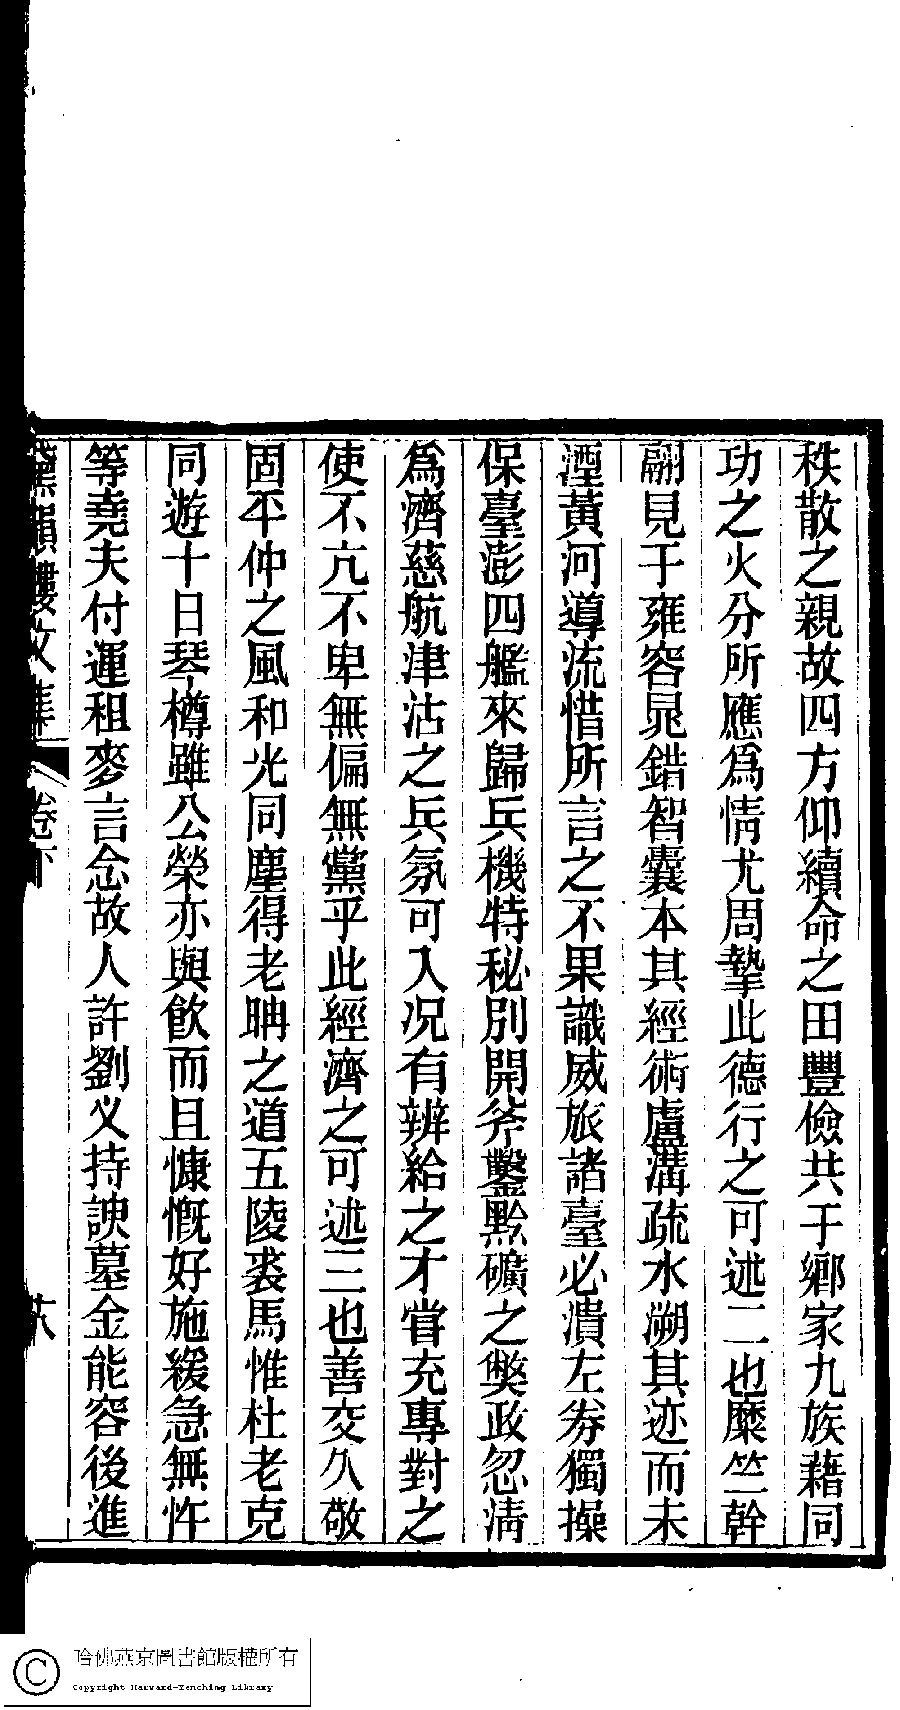 秩散之親故四方仰續命之田豐儉共于鄉家九族藉同
功之火分所應爲情尤周摯此德行之可述二也糜竺幹
翮見于雍容晁錯智囊本其經術盧溝疏水溯其迹而未
湮黃河導流惜所言之不果識威旅諸臺必潰左劵獨操
保臺澎四艦來歸兵機特秘別開斧鑿黔礦之獘政忽淸
爲濟慈航津沽之兵氛可入况有辨給之才甞充專對之
使不亢不卑無偏無黨乎此經濟之可述三也善交久敬
固平仲之風和光同塵得老聃之道五陵裘馬惟杜老克
同遊十日琴樽雖公榮亦與飲而且慷慨好施緩急無忤
等堯夫付運租麥言念故人許劉义持諛墓金能容後進
黛韻樓文集 卷下 十八
哈佛燕京圖書館版權所有
Copyright Harvard-Yenching Library